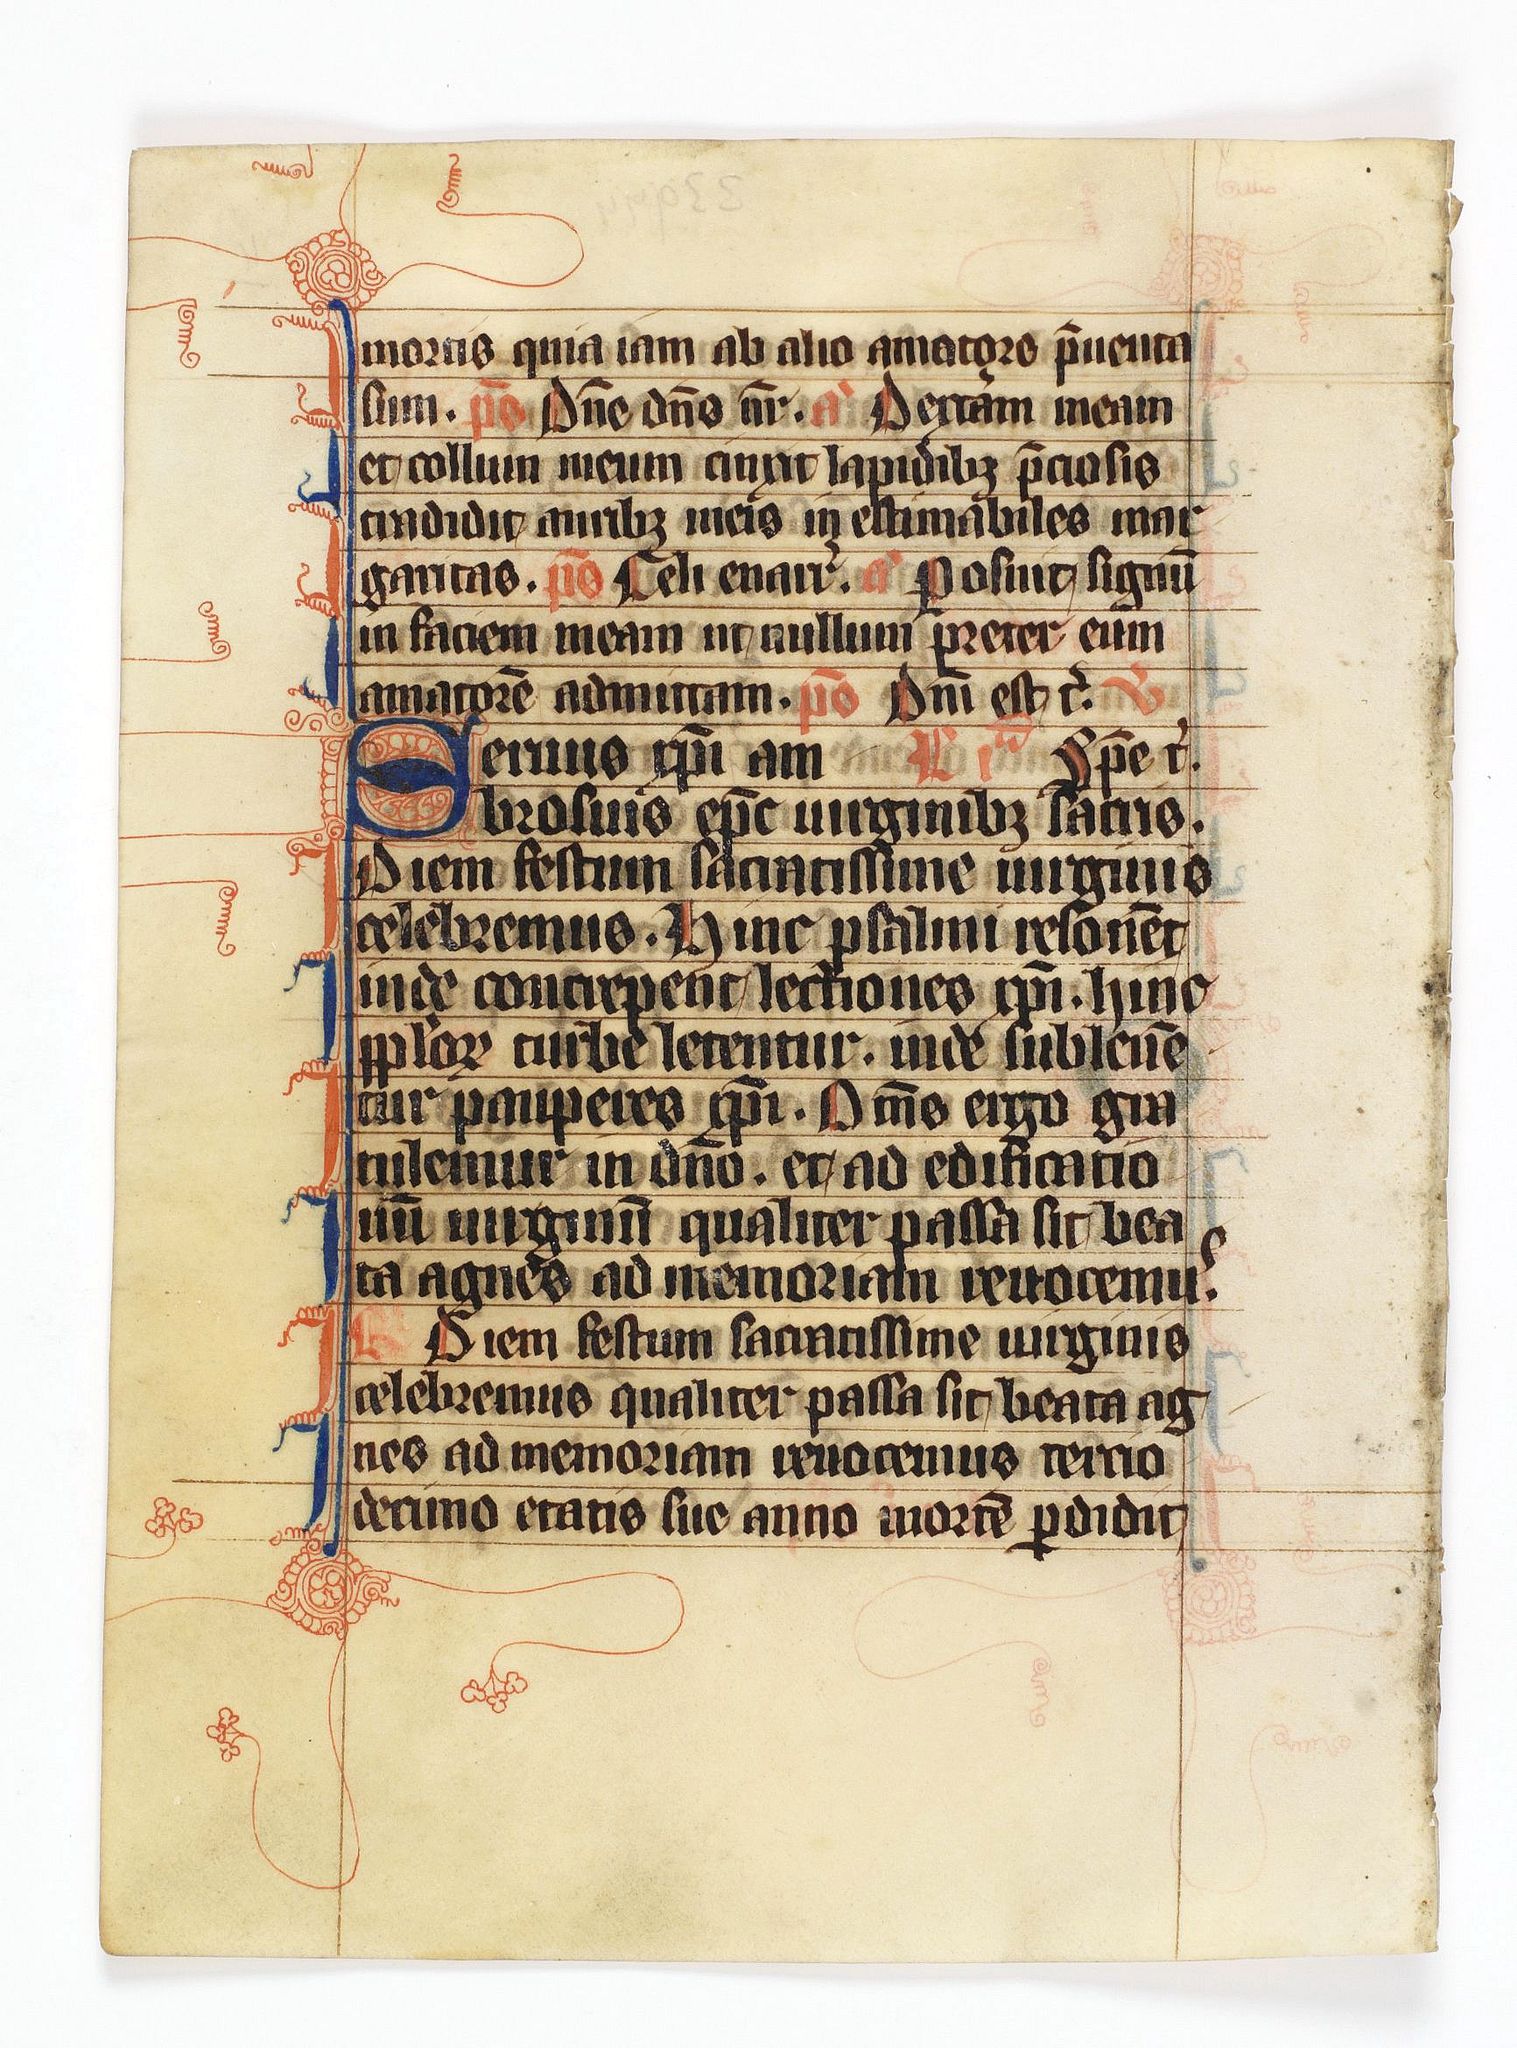 mortis quia iam ab alio amatore p̄uenta
sum. ps̄ Dn̄e dn̄s nr̄. a᷑ Dextram meam
et collum meum cinxit lapidibꝫ p̄ciosis
tradidit auribꝫ meis in estimabiles mar
garitas. ps̄ Celi enarr̄. a᷑ Posuit signū
in faciem meam ut nullum preter eum
amatorē admittam. ps̄ Dn̄i est t᷑. V
Seruus xp̄i am Sp̄e t᷑.
brosius ep̄c uirginibꝫ sacris.
Diem festum sacratissime uirginis
celebremus. Hinc psalmi resonēt
inde concrepent lectiones xp̄i. hinc
pplo᷑ꝝ turbe letentur. inde subleuē
tur pauperes xp̄i. Om̄s ergo gra
tulemur in dn̄o. et ad edificatio
nū uirginū qualiter passa sit bea
ta agnes ad memoriam reuocemus.
R᷑ Diem festum sacratissime uirginis
celebremus qualiter passa sit beata ag
nes ad memoriam reuocemus tercio
decimo etatis sue anno mortē ꝑdidit